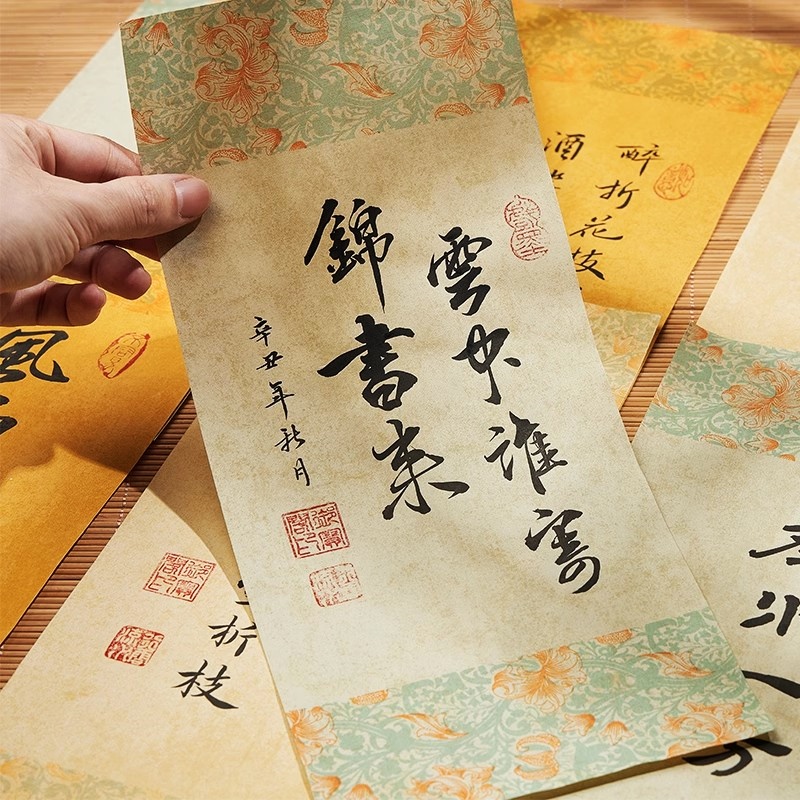 雲中誰寄
錦書来
辛丑年秋月
醉折花枝
酒
風
折枝